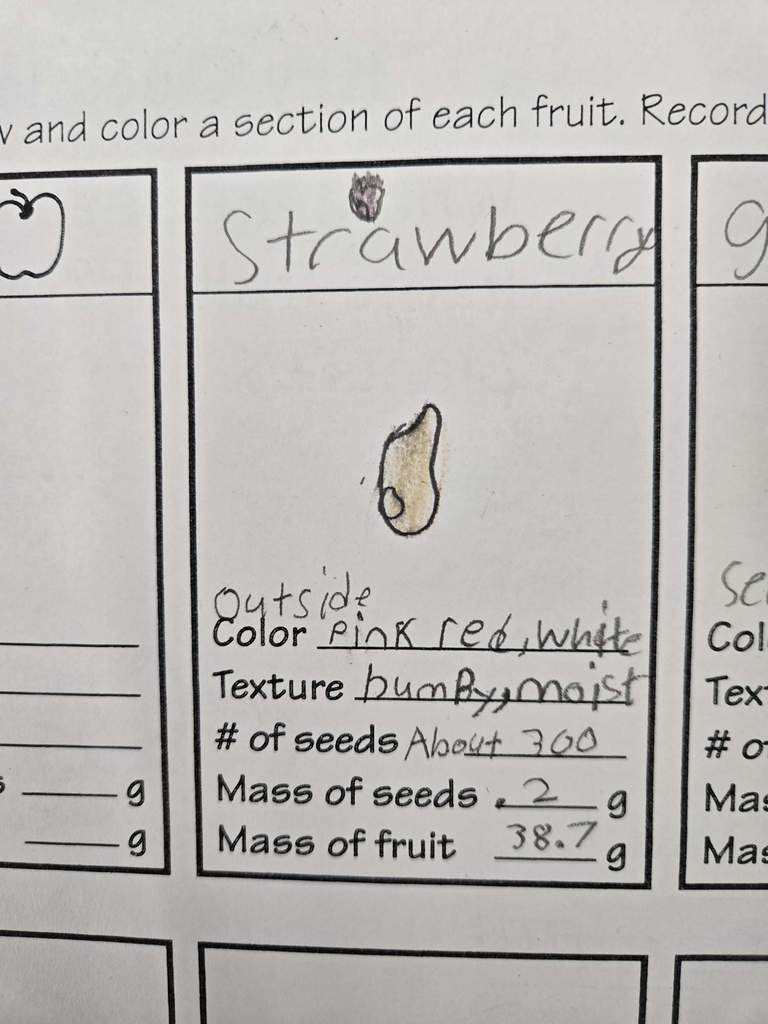 and color a section of each fruit. Record
Strawberry
Outside
Color pink red, white
Texture bumpy, moist
# of seeds About 300
Mass of seeds .2 g
Mass of fruit 38.7 g
g
g